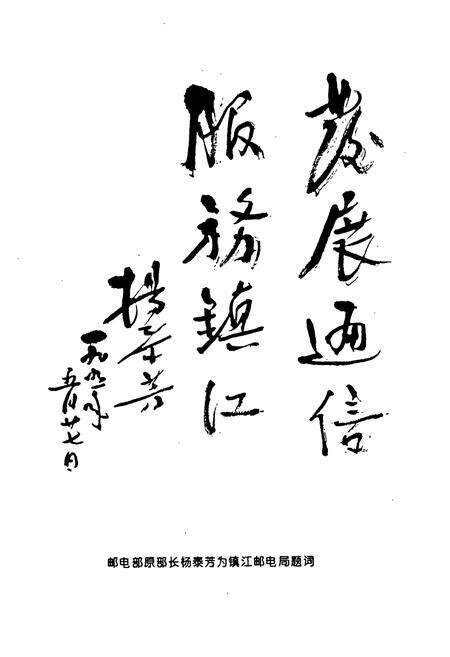 發展通信
服務鎮江
楊泰芳
一九九二年
五月廿七日
邮电部原部长杨泰芳为镇江邮电局题词